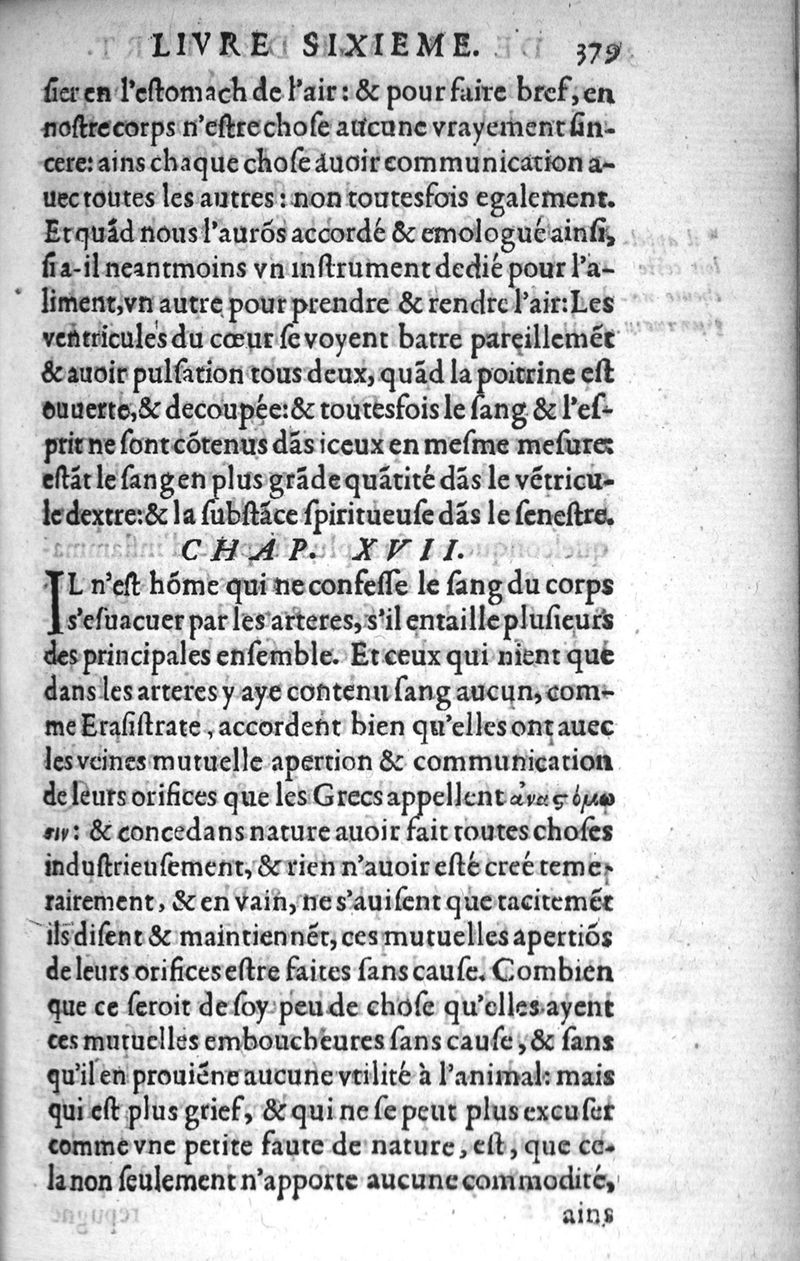 LIVRE SIXIEME. 379
ſier en l'eſtomach de l'air : & pour faire bref, en
noſtre corps n'eſtre choſe aucune vrayement ſin-
cere: ains chaque choſe auoir communication a-
uec toutes les autres : non toutesfois egalement.
Et quãd nous l'aurõs accordé & emologué ainſi,
ſi a-il neantmoins vn inſtrument dedié pour l'a-
liment, vn autre pour prendre & rendre l'air: Les
ventricules du cœur ſe voyent batre pareillemẽt
& auoir pulſation tous deux, quãd la poitrine eſt
ouuerte, & decoupée: & toutesfois le ſang & l'eſ-
prit ne ſont cõtenus dãs iceux en meſme meſure:
eſtãt le ſang en plus grãde quãtité dãs le vẽtricu-
le dextre: & la ſubſtãce ſpiritueuſe dãs le ſeneſtre.
CHAP. XVII.
IL n'eſt hõme qui ne confeſſe le ſang du corps
s'eſuacuer par les arteres, s'il entaille pluſieurs
des principales enſemble. Et ceux qui nient que
dans les arteres y aye contenu ſang aucun, com-
me Eraſiſtrate, accordent bien qu'elles ont auec
les veines mutuelle apertion & communication
de leurs orifices que les Grecs appellent ἀναϛόμω
σιν: & concedans nature auoir fait toutes choſes
induſtrieuſement, & rien n'auoir eſté creé teme-
rairement, & en vain, ne s'auiſent que tacitemẽt
ils diſent & maintiennẽt, ces mutuelles apertiõs
de leurs orifices eſtre faites ſans cauſe. Combien
que ce ſeroit de ſoy peu de choſe qu'elles ayent
ces mutuelles emboucheures ſans cauſe, & ſans
qu'il en prouiẽne aucune vtilité à l'animal: mais
qui eſt plus grief, & qui ne ſe peut plus excuſer
comme vne petite faute de nature, eſt, que ce-
la non ſeulement n'apporte aucune commodité,
ains